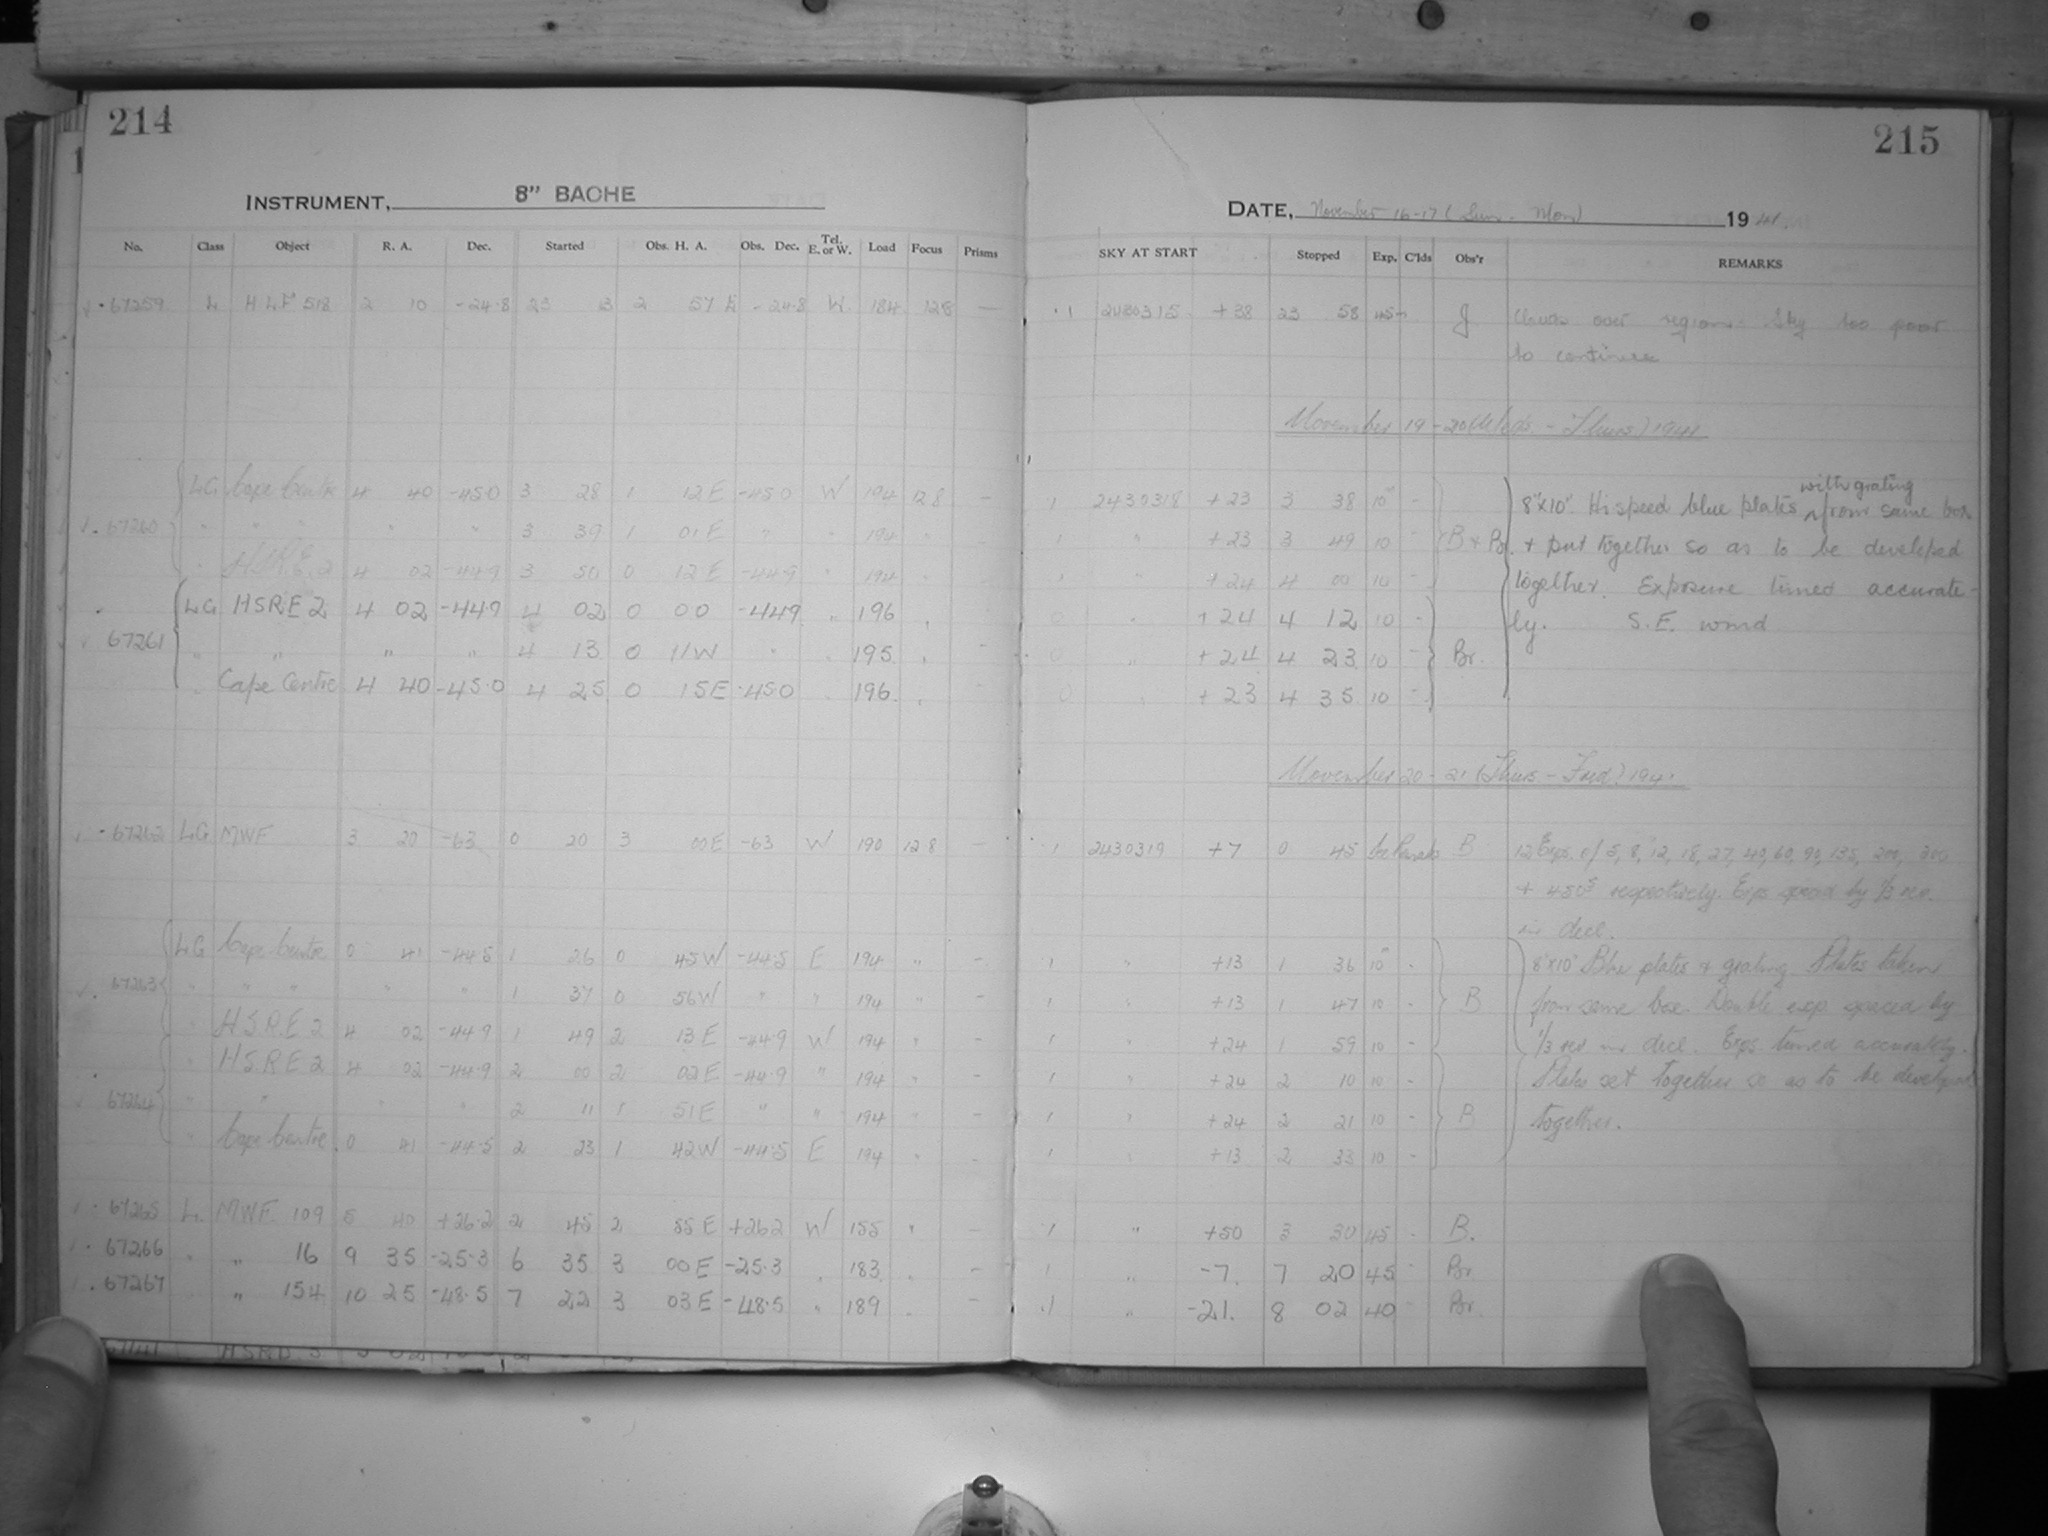 214
INSTRUMENT, 8" BACHE
No. Class Object R. A. Dec. Started Obs. H. A. Obs. Dec. Tel. E. or W. Load Focus Prisms
67259 L HLF 518 2 10 -24.8 23 13 2 57 E -24.8 W 184 128 —
LG Cape Centre 4 40 -45.0 3 28 1 12 E -45.0 W 194 128 –
67260 " " " " " 3 39 1 01 E " " 194 "
" H.S.R.E. 2 4 02 -44.9 3 50 0 12 E -44.9 " 194 "
LG HSRE 2 4 02 -44.9 4 02 0 00 -44.9 " 196 "
67261 " " " " 4 13 0 11 W " " 195 " –
" Cape Centre 4 40 -45.0 4 25 0 15 E -45.0 196 "
67262 LG MWF 3 20 -63 0 20 3 00 E -63 W 190 128 –
LG Cape Centre 0 41 -44.5 1 26 0 45 W -44.5 E 194 " –
67263 " " " " " 1 37 0 56 W " " 194 " –
" H.S.R.E 2 4 02 -44.9 1 49 2 13 E -44.9 W 194 "
" H.S.R.E 2 4 02 -44.9 2 00 2 02 E -44.9 " 194 "
67264 " " " " 2 11 1 51 E " " 194 " –
" Cape Centre 0 41 -44.5 2 23 1 42 W -44.5 E 194 " –
67265 L MWF 109 5 40 +26.2 2 45 2 55 E +26.2 W 155 "
67266 " " 16 9 35 -25.3 6 35 3 00 E -25.3 " 183 " –
67267 " " 154 10 25 -48.5 7 22 3 03 E -48.5 " 189 " –
67141 HSRD 3
215
DATE, November 16-17 (Sun. - Mon) 1941.
SKY AT START Stopped Exp. C'lds Obs'r REMARKS
1 2430315 +38 23 58 45 J Clouds over region. Sky too poor
to continue
November 19-20 (Weds. - Thurs) 1941
1 2430318 +23 3 38 10m - 8"x10" Hispeed blue plates with grating from same box
1 " +23 3 49 10 - B + Br. + put together so as to be developed
1 " +24 4 00 10 - together. Exposure timed accurate-
0 " +24 4 12 10 - ly. S.E. wind
0 " +24 4 23 10 - Br.
0 " +23 4 35 10 -
November 20-21 (Thurs - Frid.) 1941
1 2430319 +7 0 45 See Remarks B 12 Exps. of 5, 8, 12, 18, 27, 40, 60, 90, 135, 200, 300
+ 450s respectively. Exps spaced by 1/3 rev.
in decl.
1 " +13 1 36 10m - 8"x10" Blue plates + grating. Plates taken
1 " +13 1 47 10 - B from same box. Double exp. spaced by
1 " +24 1 59 10 - 1/3 rev in decl. Exps timed accurately.
1 " +24 2 10 10 - Plates set together so as to be developed
1 " +24 2 21 10 - B together.
1 " +13 2 33 10 -
1 " +50 3 30 45 - B.
1 " -7. 7 20 45 - Br.
1 " -21. 8 02 40 - Br.